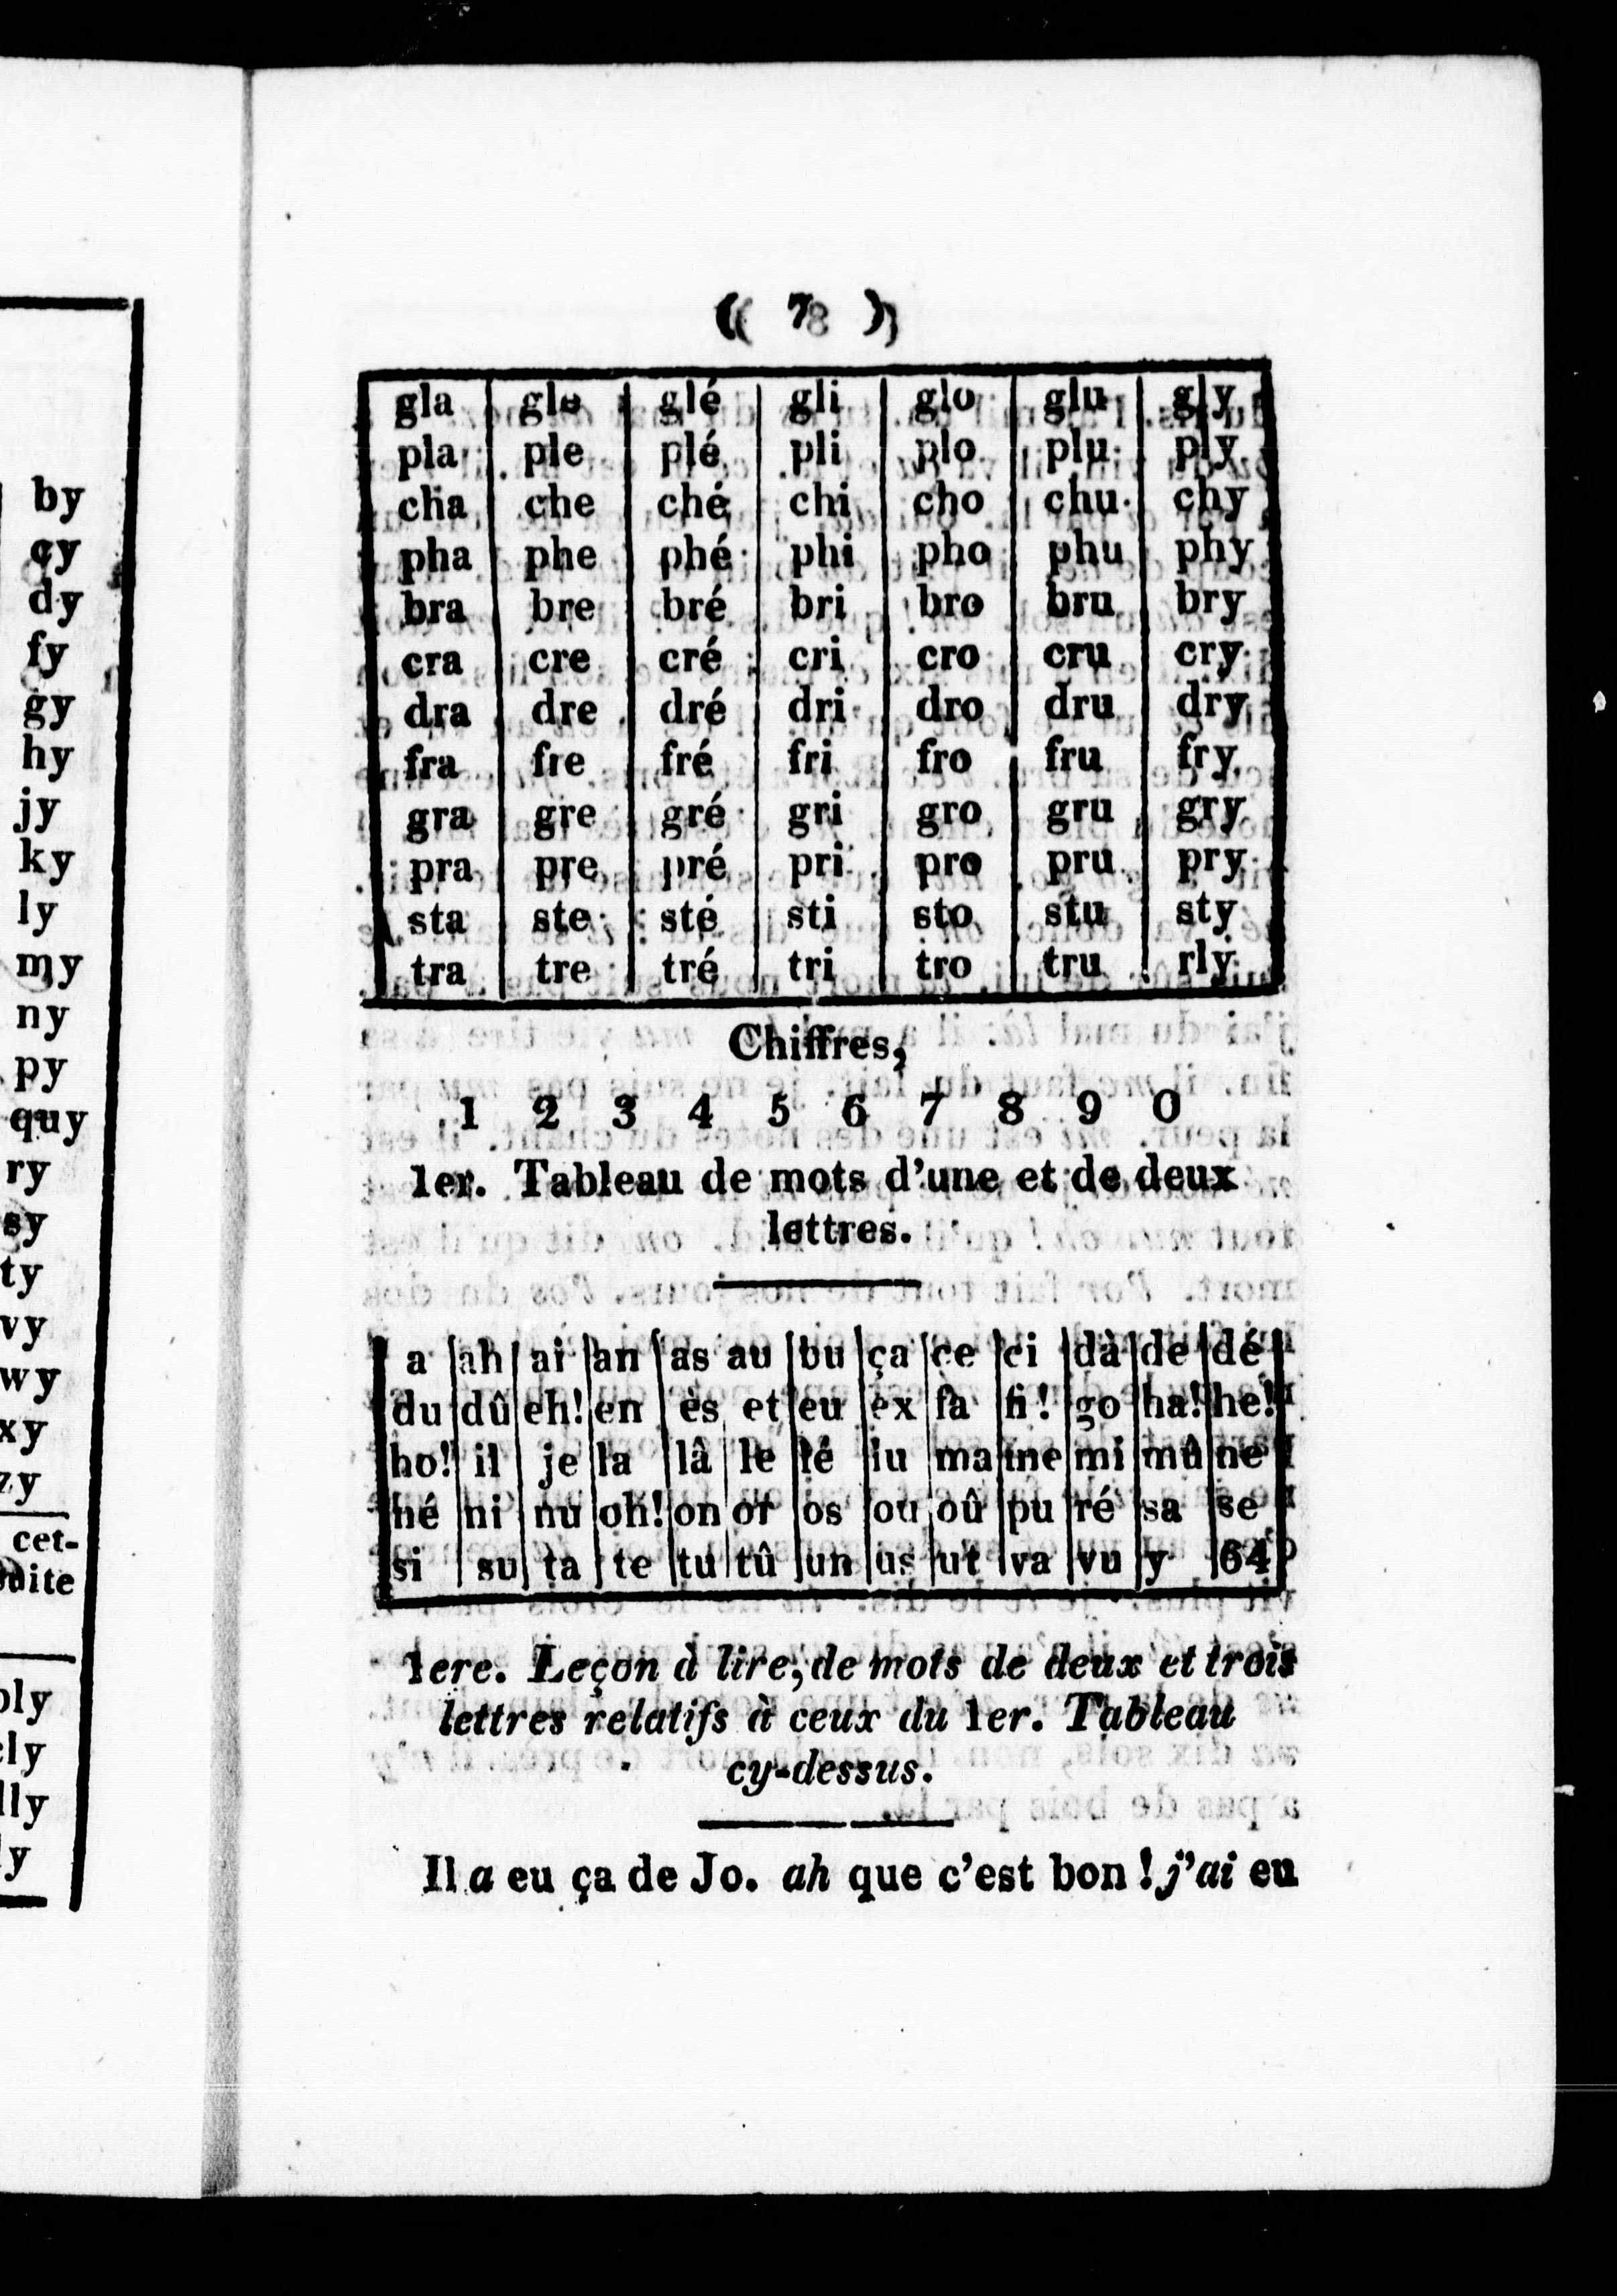 by
cy
dy
fy
gy
hy
jy
ky
ly
my
ny
py
quy
ry
sy
ty
vy
wy
xy
zy
cet-
ply
lly
( 7 )
gla gle glé gli glo glu gly
pla ple plé pli plo plu ply
cha che ché chi cho chu chy
pha phe phé phi pho phu phy
bra bre bré bri bro bru bry
cra cre cré cri cro cru cry
dra dre dré dri dro dru dry
fra fre fré fri fro fru fry
gra gre gré gri gro gru gry
pra pre pré pri pro pru pry
sta ste sté sti sto stu sty
tra tre tré tri tro tru rly
Chiffres,
1 2 3 4 5 6 7 8 9 0
1er. Tableau de mots d'une et de deux
lettres.
a ah ai an as au bu ça ce ci dà de dé
du dû eh! en ès et eu ex fa fi! go ha! he!
ho! il je la lâ le lé lu ma me mi mû ne
né ni nu oh! on or os ou oû pu ré sa se
si su ta te tu tû un us ut va vu y 64
1ere. Leçon à lire, de mots de deux et trois
lettres relatifs à ceux du 1er. Tableau
cy-dessus.
Il a eu ça de Jo. ah que c'est bon ! j'ai eu